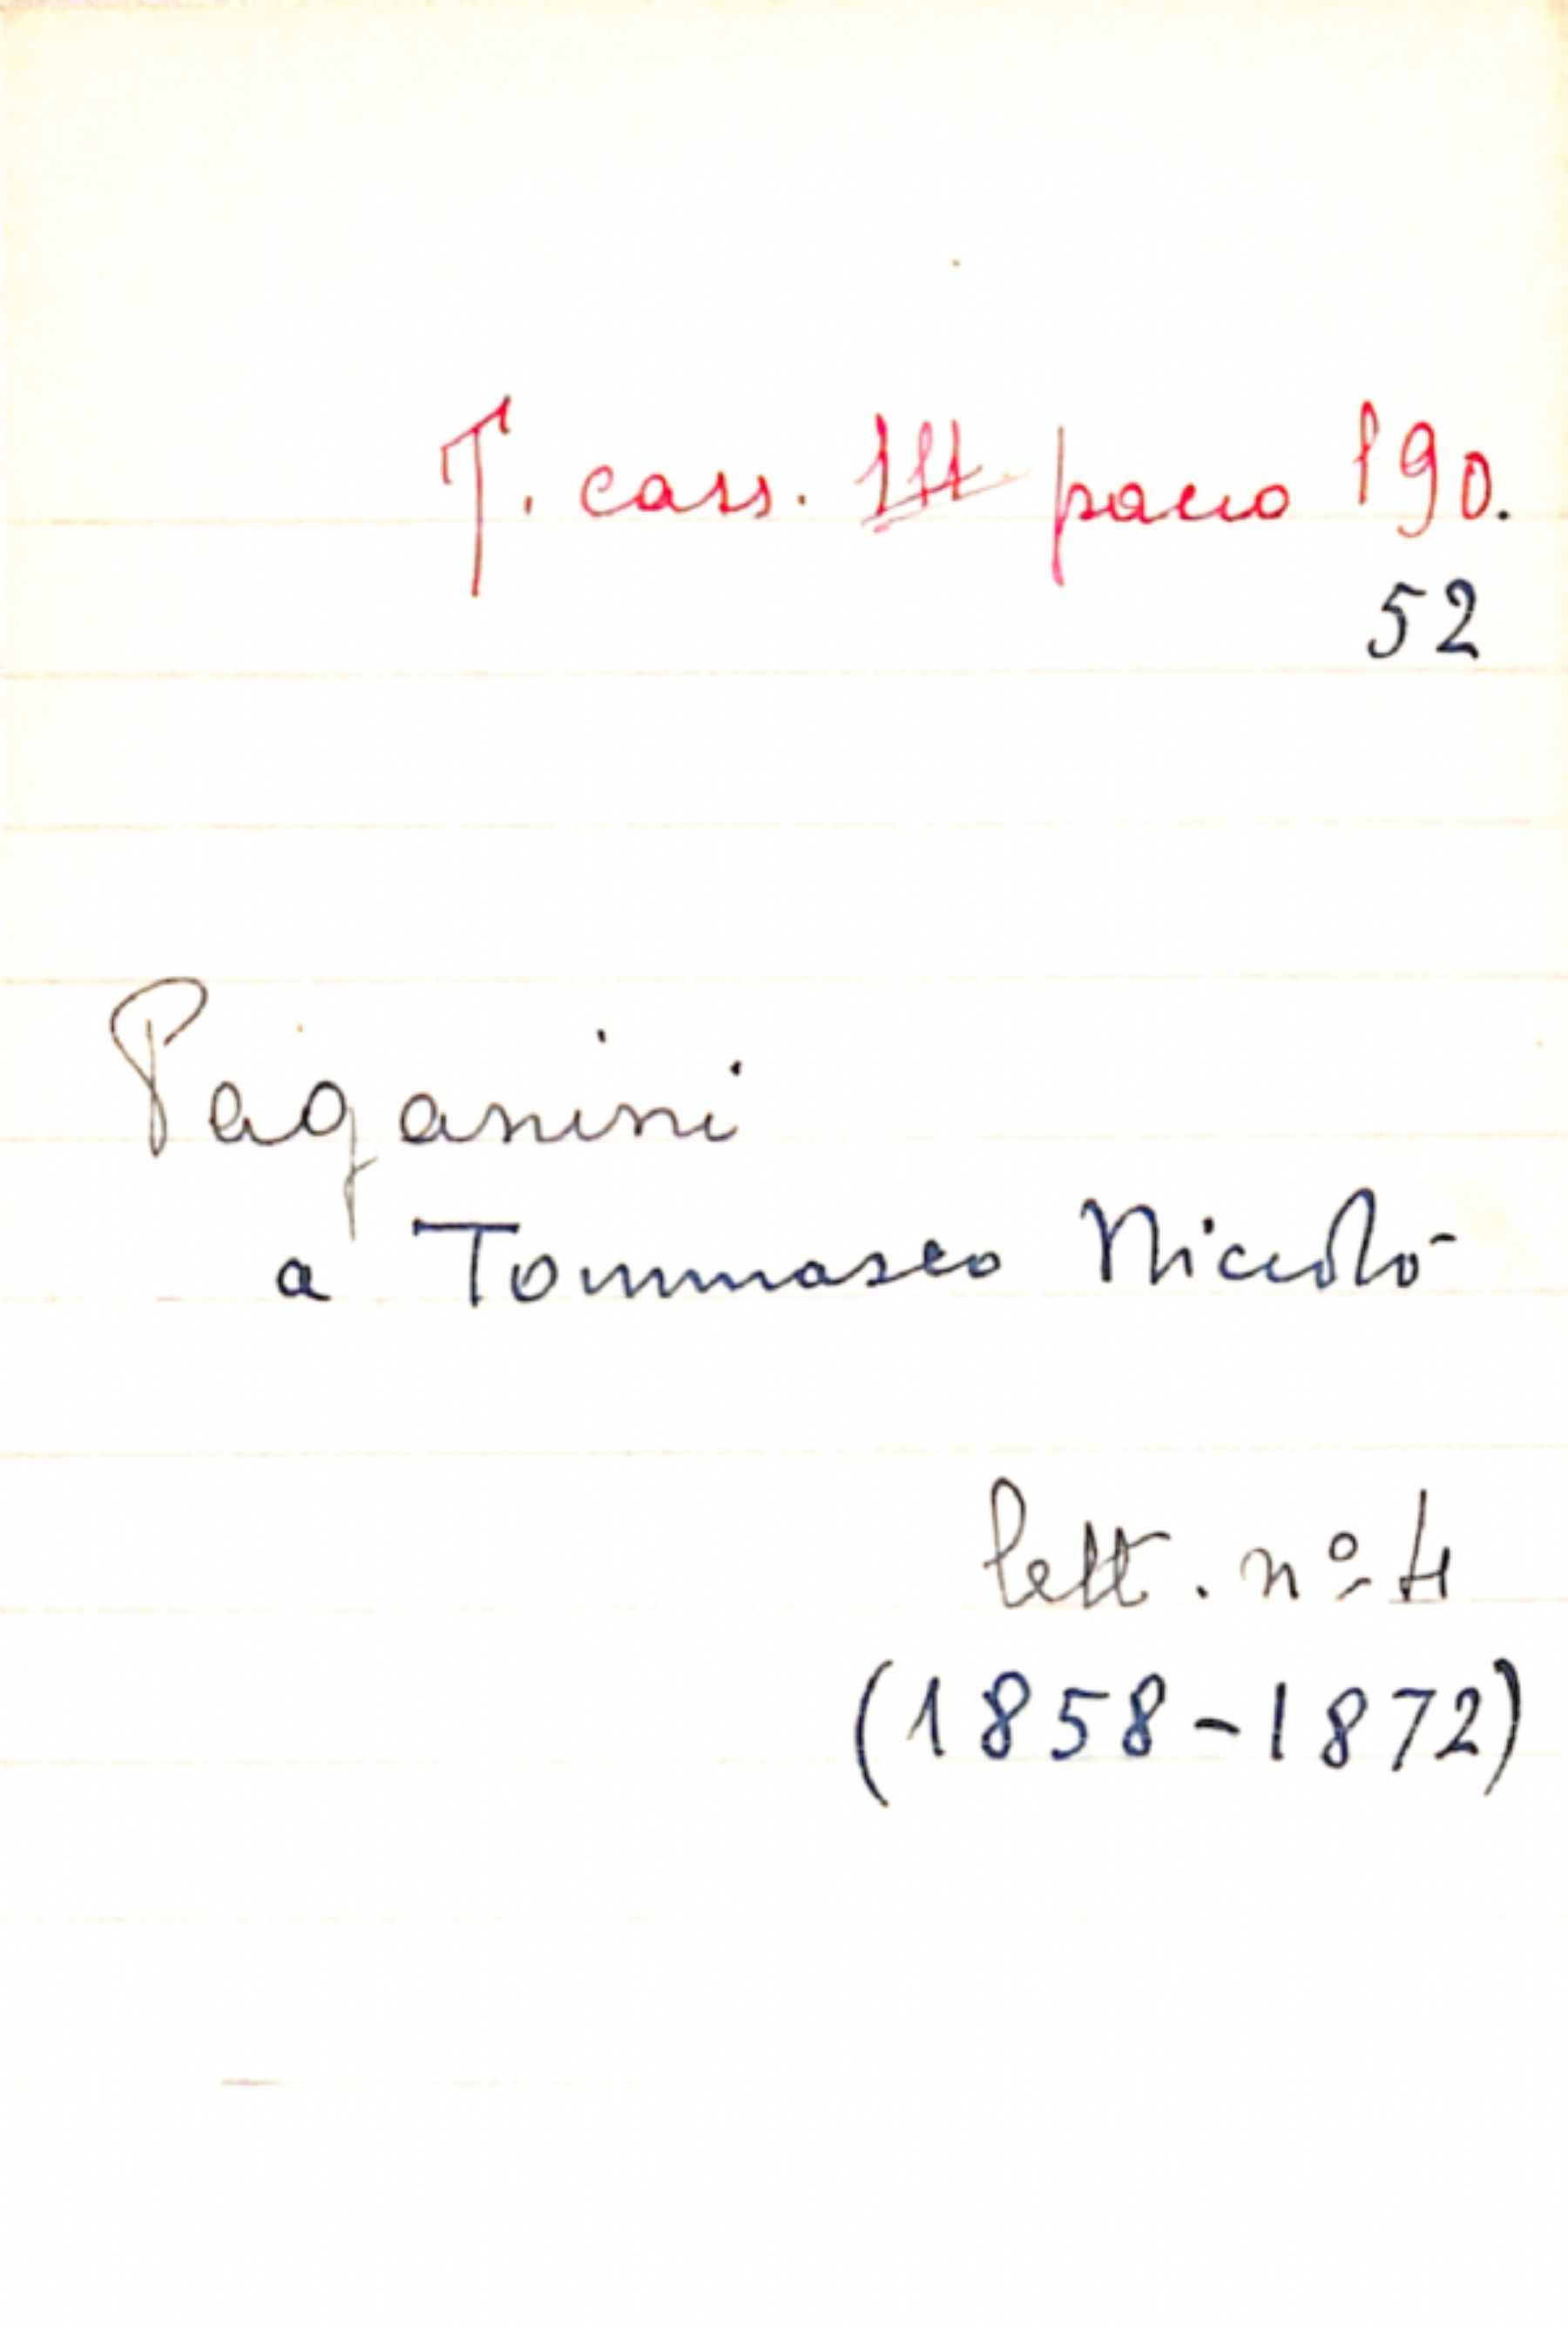 T. cass. III pacco 190.
52
Paganini
a Tommaseo Niccolò
lett. nº 4
(1858-1872)